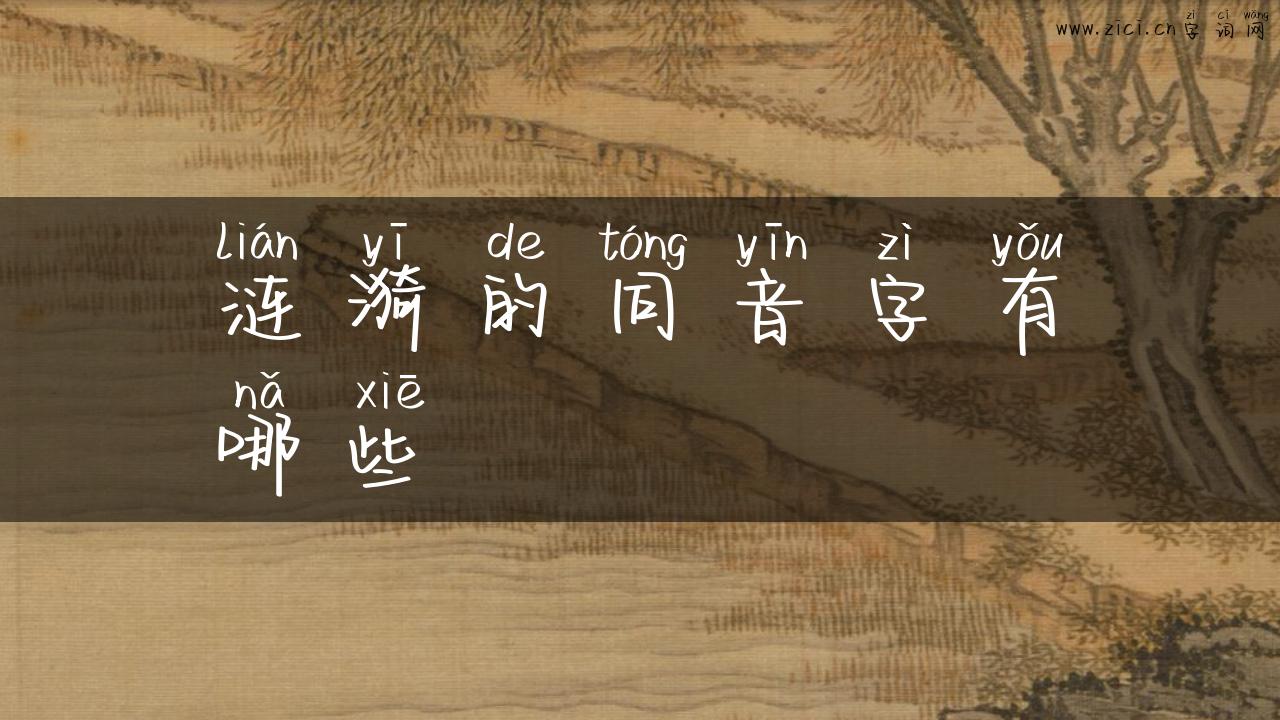 zì cí wǎng
www.zici.cn字词网
lián yī de tóng yīn zì yǒu
涟漪的同音字有
nǎ xiē
哪些